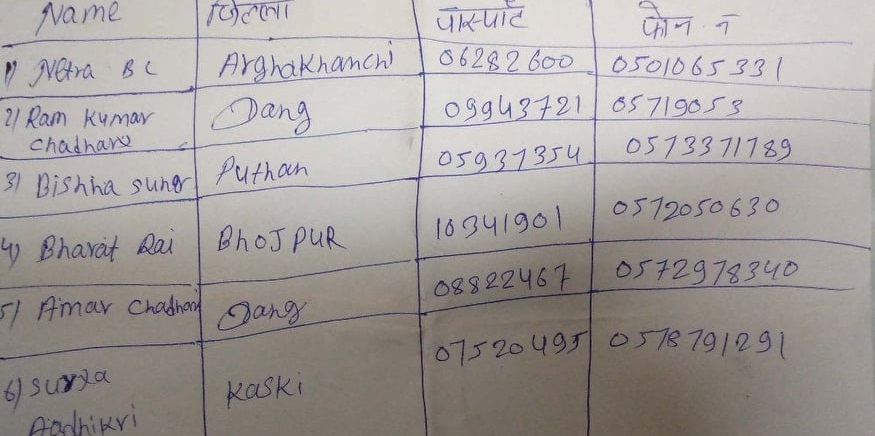 Name जिल्ला पासपोर्ट फोन नं
1) Netra BC Arghakhanchi 06282600 0501065331
2) Ram Kumar Dang 09943721 05719053
Chadhara
3) Bishna sunar Puthan 05937354 0573371789
4) Bharat Rai BHOJPUR 10341901 0572050630
5) Amar Chadhara Dang 08822467 0572978340
6) surya Kaski 07520495 0578791291
Aadhikri